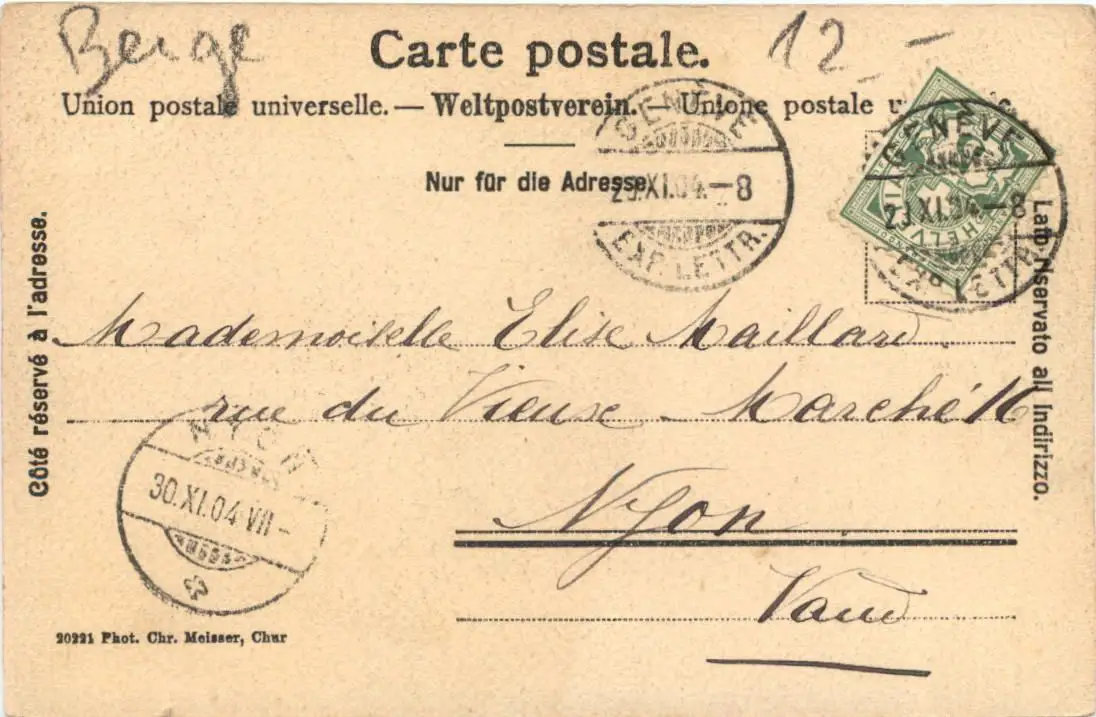 Berge
12.–
Carte postale.
Union postale universelle. — Weltpostverein. — Unione postale
Nur für die Adresse
GENÈVE
29.XI.04.–8
EXP. LETTR.
GENÈVE
29.XI.04.–8
EXP. LETTR.
HELVETIA
Côté réservé à l'adresse.
Lato riservato all Indirizzo.
Mademoiselle Elise Maillard
rue du Vieux Marché 16
Nyon
Vaud
NYON
30.XI.04.VII–
20221 Phot. Chr. Meisser, Chur